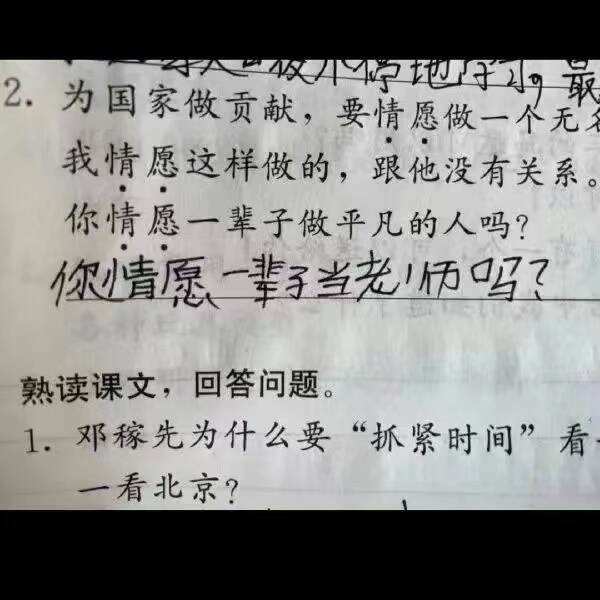 2. 为国家做贡献，要情愿做一个无名
我情愿这样做的，跟他没有关系。
你情愿一辈子做平凡的人吗？
你情愿一辈子当老师吗？
熟读课文，回答问题。
1. 邓稼先为什么要“抓紧时间”看
一看北京？